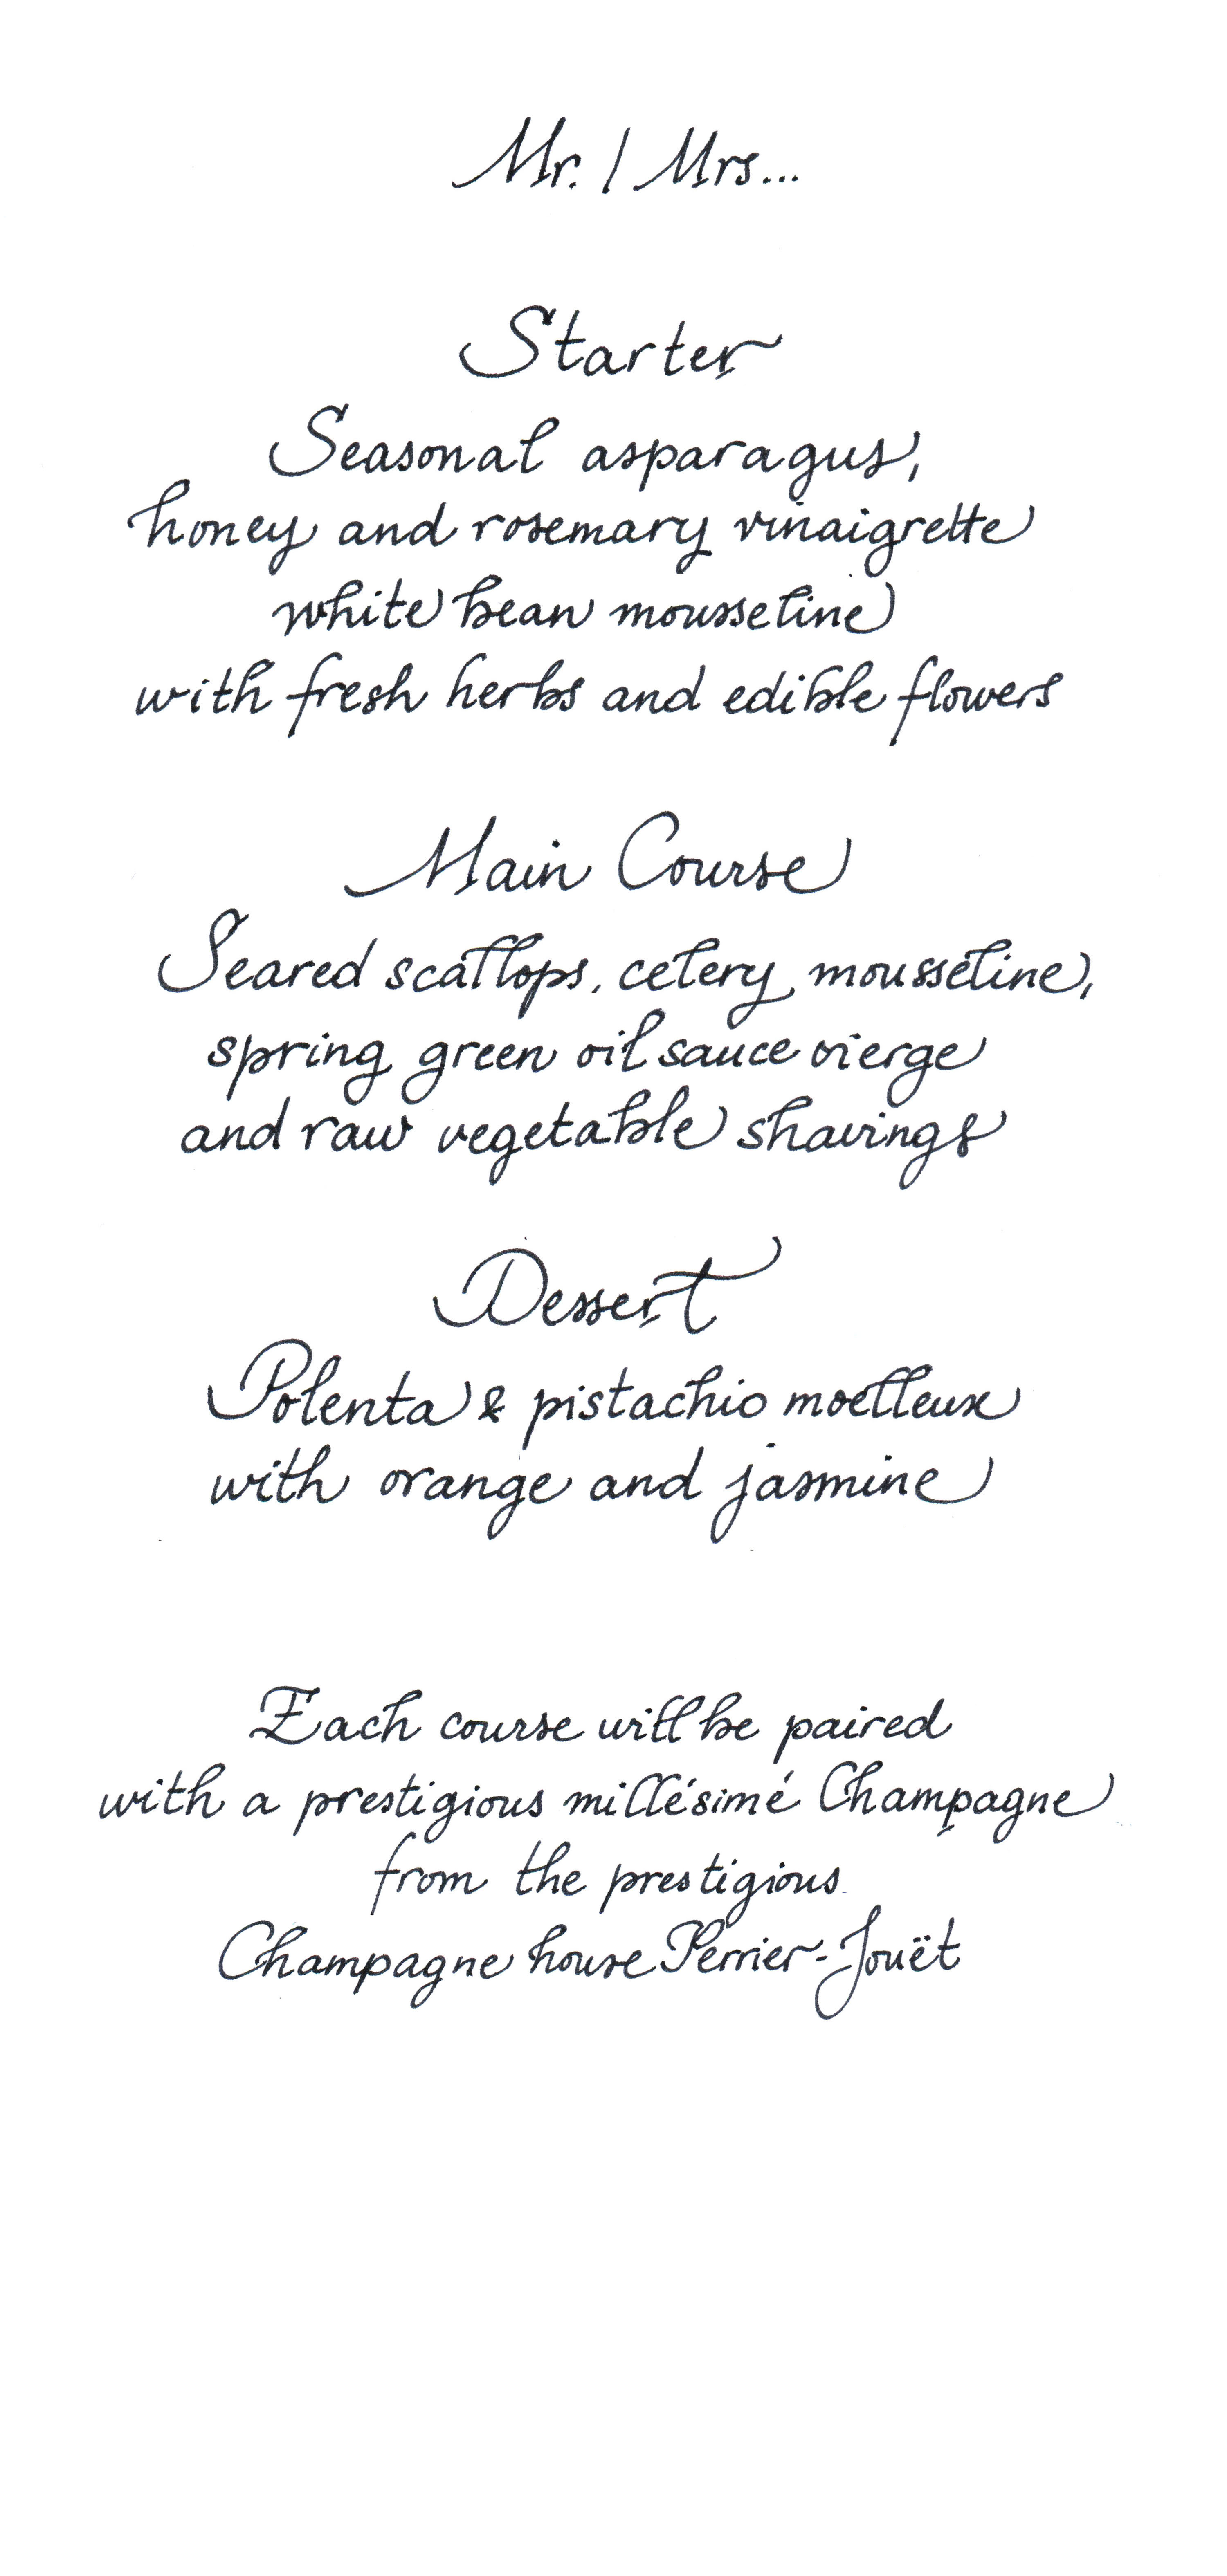 Mr. / Mrs...
Starter
Seasonal asparagus,
honey and rosemary vinaigrette
white bean mousseline
with fresh herbs and edible flowers
Main Course
Seared scallops, celery mousseline,
spring green oil sauce vierge
and raw vegetable shavings
Dessert
Polenta & pistachio moelleux
with orange and jasmine
Each course will be paired
with a prestigious millésimé Champagne
from the prestigious
Champagne house Perrier-Jouët